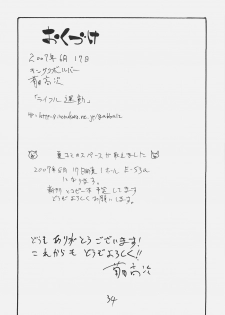 おくづけ
2007年6月17日
キングリボルバー
高次
「ライフル運動」
夏コミのスペースが取れました
2007年8月17日 東1ホール E-53a
になります。
新刊とコピー本予定してます
どうぞよろしくお願いします
どうもありがとうございます!
これからもどうぞよろしく!!
高次
34